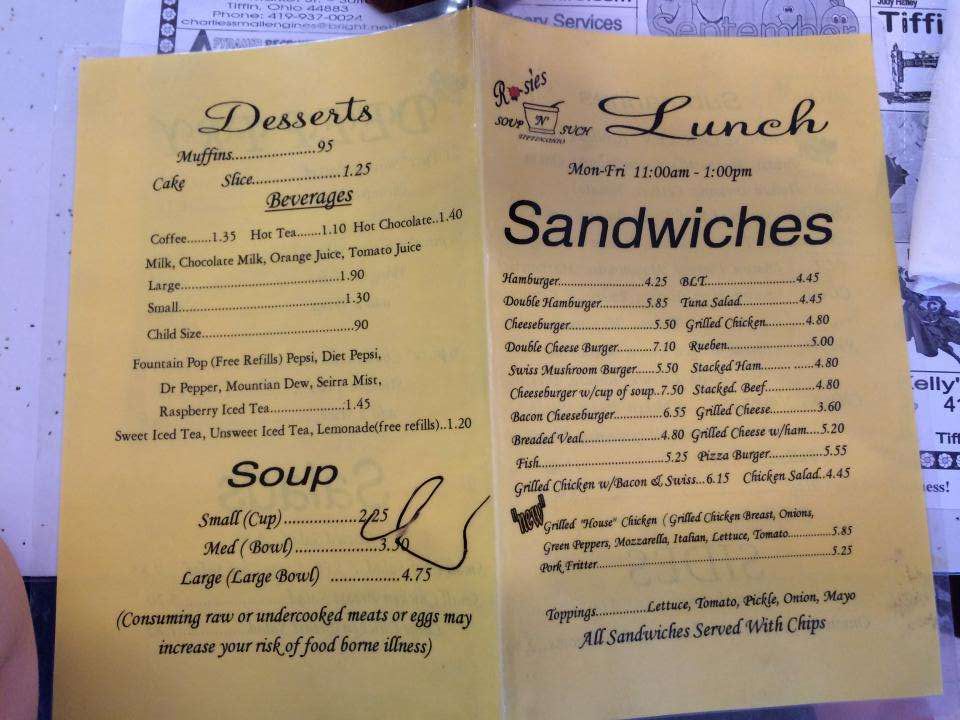 Tiffin, Ohio 44883
Phone: 419-937-0024
charliessmallengines@bright.net
Services
September
Judy Harley
Tiffi
Desserts
Muffins.....................95
Cake Slice......................1.25
Beverages
Coffee.......1.35 Hot Tea.......1.10 Hot Chocolate..1.40
Milk, Chocolate Milk, Orange Juice, Tomato Juice
Large........................................1.90
Small.........................................1.30
Child Size......................................90
Fountain Pop (Free Refills) Pepsi, Diet Pepsi,
Dr Pepper, Mountian Dew, Seirra Mist,
Raspberry Iced Tea...................1.45
Sweet Iced Tea, Unsweet Iced Tea, Lemonade(free refills)..1.20
Soup
Small (Cup)..................2.25
Med ( Bowl)....................3.50
Large (Large Bowl) .................4.75
(Consuming raw or undercooked meats or eggs may
increase your risk of food borne illness)
Rosies
SOUP N' SUCH
Lunch
Mon-Fri 11:00am - 1:00pm
Sandwiches
Hamburger.......................4.25 BLT...............................4.45
Double Hamburger.............5.85 Tuna Salad.....................4.45
Cheeseburger........................5.50 Grilled Chicken...........4.80
Double Cheese Burger..........7.10 Rueben.....................5.00
Swiss Mushroom Burger......5.50 Stacked Ham......... ......4.80
Cheeseburger w/cup of soup..7.50 Stacked. Beef............4.80
Bacon Cheeseburger.............6.55 Grilled Cheese............3.60
Breaded Veal.......................4.80 Grilled Cheese w/ham....5.20
Fish...................................5.25 Pizza Burger..............5.55
Grilled Chicken w/Bacon & Swiss...6.15 Chicken Salad..4.45
"new"
Grilled "House" Chicken ( Grilled Chicken Breast, Onions,
Green Peppers, Mozzarella, Italian, Lettuce, Tomato...........5.85
Pork Fritter..................................................................5.25
Toppings.............Lettuce, Tomato, Pickle, Onion, Mayo
All Sandwiches Served With Chips
elly's
41
Tiff
ess!